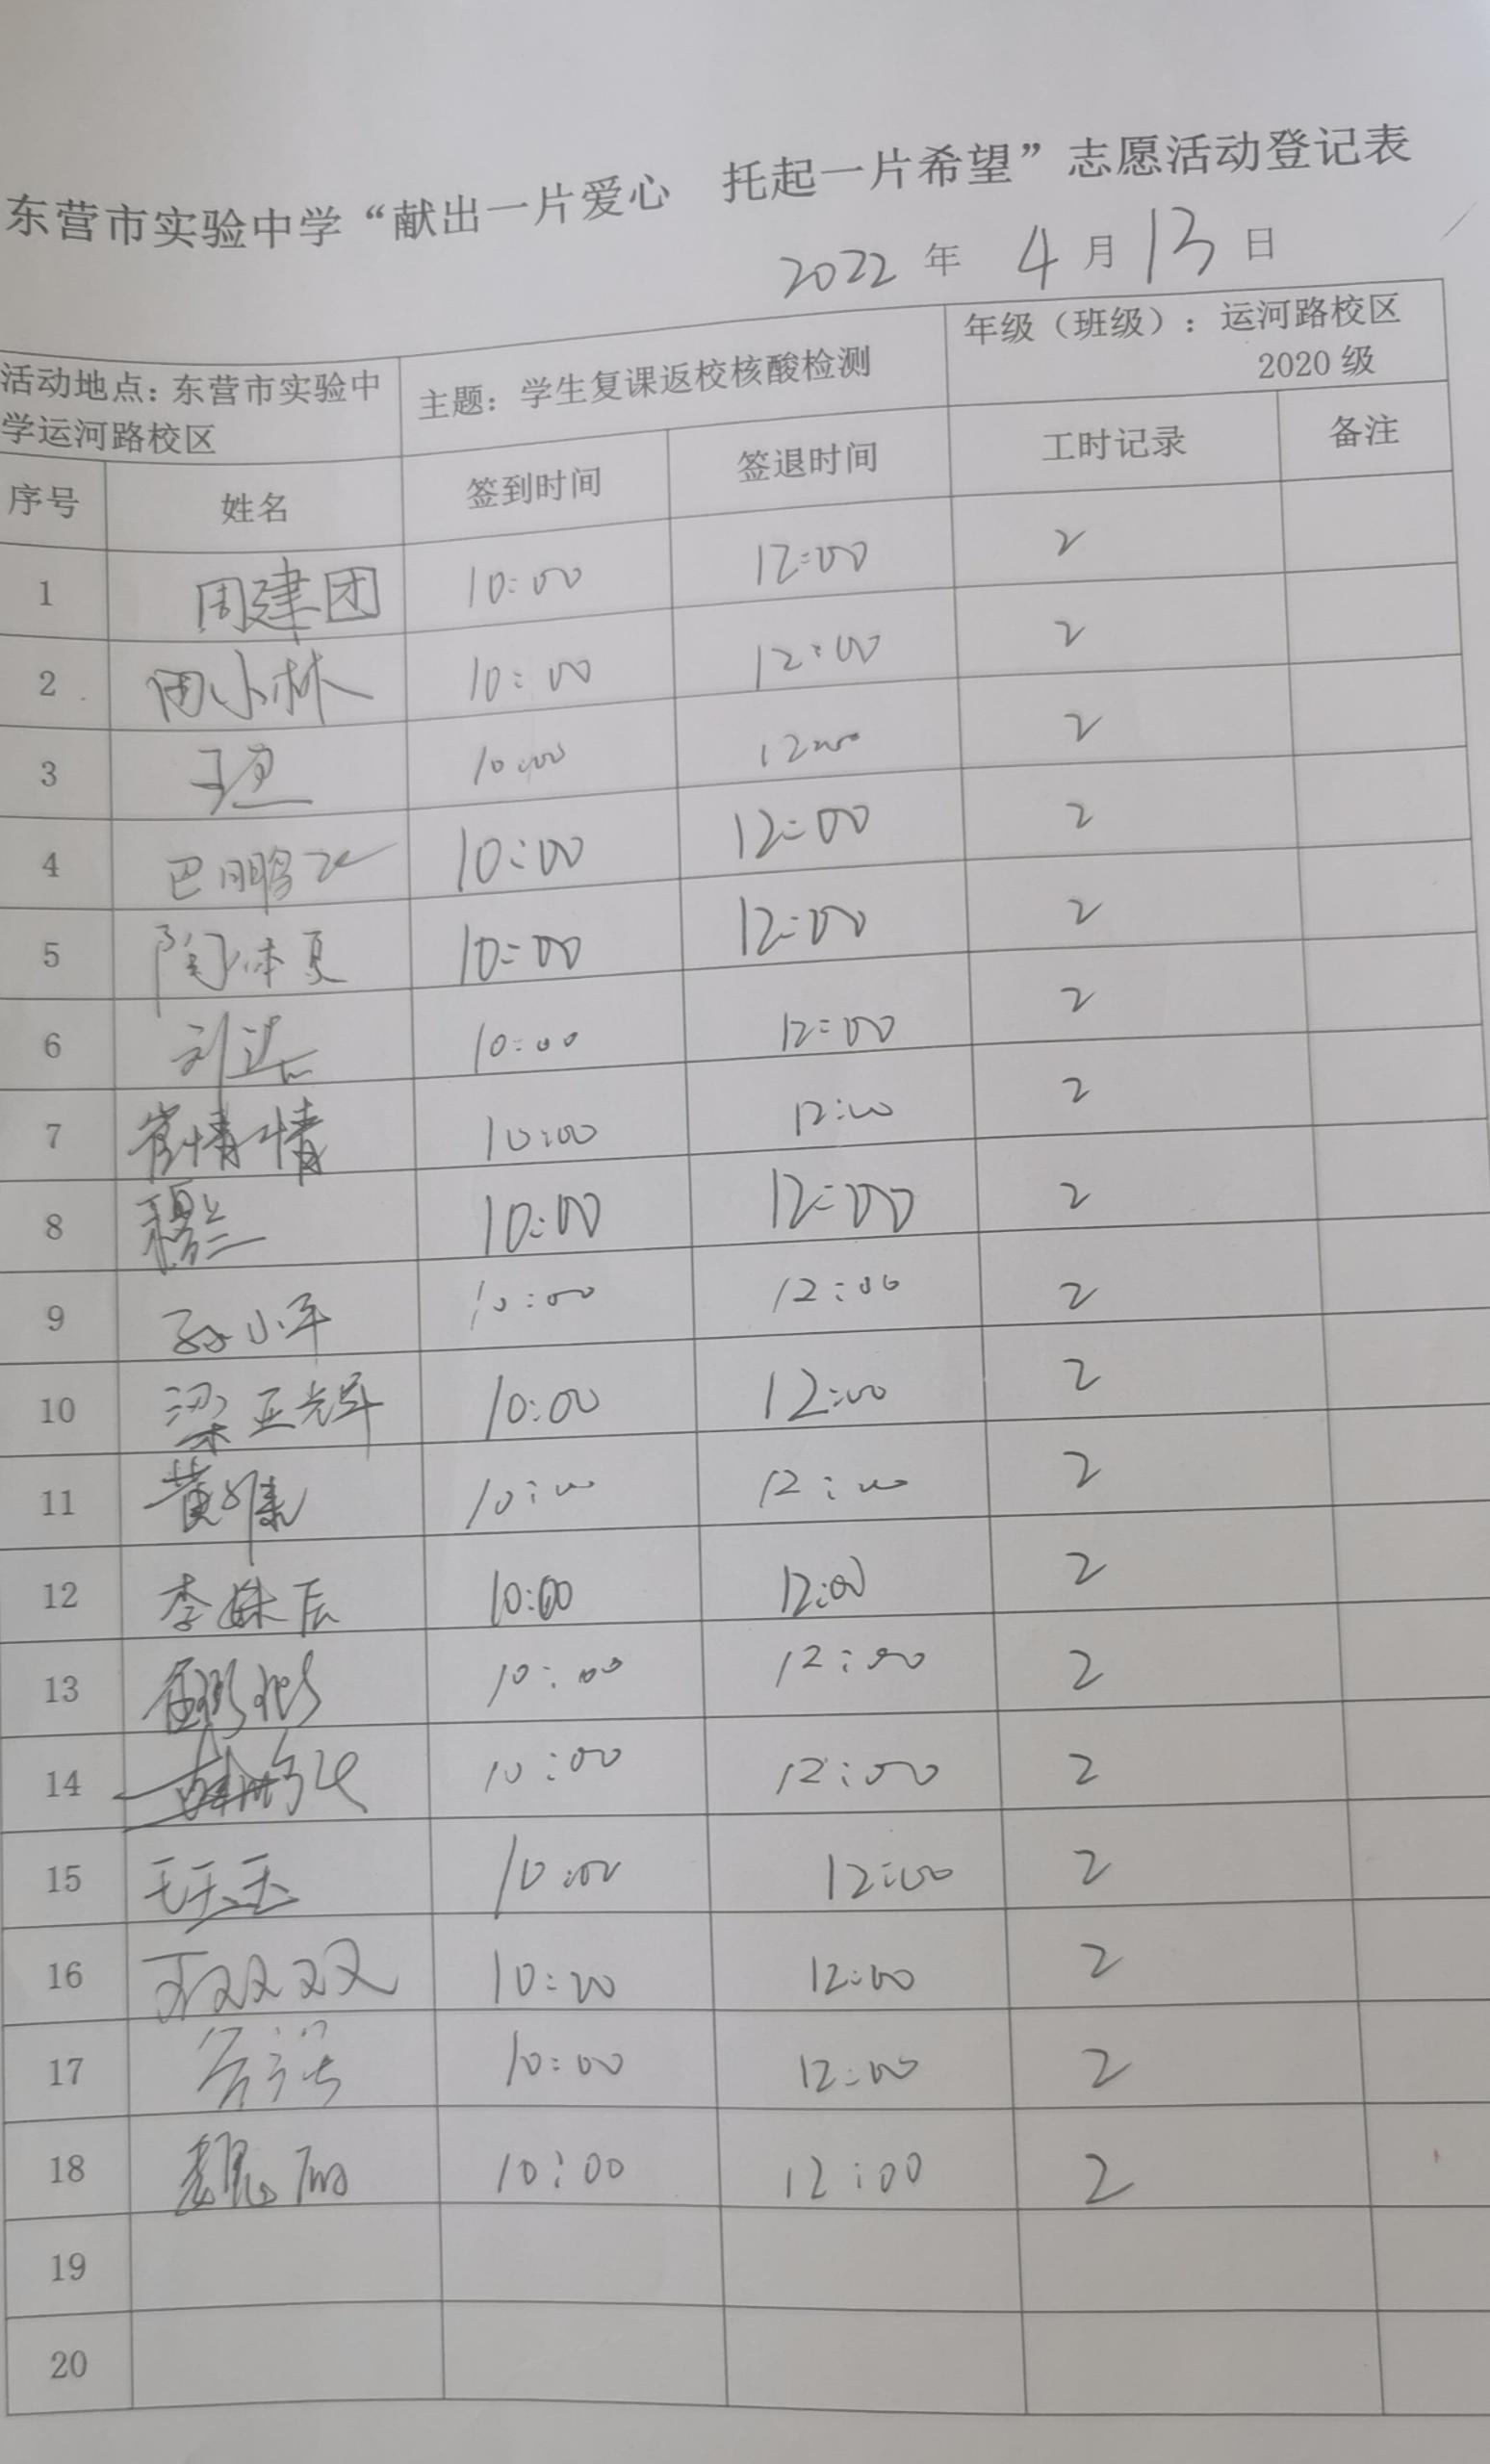 东营市实验中学“献出一片爱心 托起一片希望”志愿活动登记表
2022 年 4 月 13 日
活动地点：东营市实验中学运河路校区 主题：学生复课返校核酸检测 年级（班级）：运河路校区 2020 级
序号 姓名 签到时间 签退时间 工时记录 备注
1 周建团 10:00 12:00 2
2 田小林 10:00 12:00 2
3 10:00 12:00 2
4 巴鹏飞 10:00 12:00 2
5 陶体夏 10:00 12:00 2
6 10:00 12:00 2
7 崔情情 10:00 12:00 2
8 穆兰 10:00 12:00 2
9 孙小平 10:00 12:00 2
10 梁亚辉 10:00 12:00 2
11 黄 10:00 12:00 2
12 李姝辰 10:00 12:00 2
13 10:00 12:00 2
14 10:00 12:00 2
15 毛玉玉 10:00 12:00 2
16 双双 10:00 12:00 2
17 10:00 12:00 2
18 魏丽 10:00 12:00 2
19
20